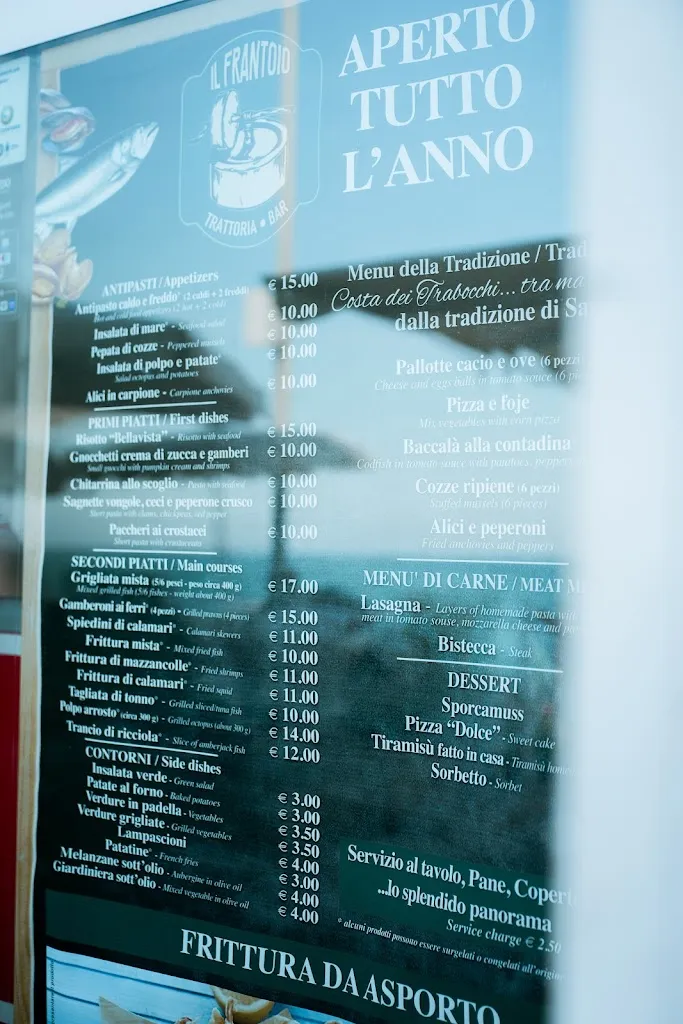 IL FRANTOIO
TRATTORIA • BAR
APERTO
TUTTO
L'ANNO
ANTIPASTI / Appetizers
Antipasto caldo e freddo* (2 caldi + 2 freddi) € 15.00
Hot and cold food appetizers (2 hot + 2 cold)
Insalata di mare* - Seafood salad € 10.00
Pepata di cozze - Peppered mussels € 10.00
Insalata di polpo e patate* € 10.00
Salad octopus and potatoes
Alici in carpione - Carpione anchovies € 10.00
PRIMI PIATTI / First dishes
Risotto "Bellavista" - Risotto with seafood € 15.00
Gnocchetti crema di zucca e gamberi € 10.00
Small gnocchi with pumpkin cream and shrimps
Chitarrina allo scoglio - Pasta with seafood € 10.00
Sagnette vongole, ceci e peperone crusco € 10.00
Short pasta with clams, chickpeas, red pepper
Paccheri ai crostacei € 10.00
Short pasta with crustaceans
SECONDI PIATTI / Main courses
Grigliata mista (5/6 pesci - peso circa 400 g) € 17.00
Mixed grilled fish (5/6 fishes - weight about 400 g)
Gamberoni ai ferri* (4 pezzi) - Grilled prawns (4 pieces) € 15.00
Spiedini di calamari* - Calamari skewers € 11.00
Frittura mista* - Mixed fried fish € 10.00
Frittura di mazzancolle* - Fried shrimps € 11.00
Frittura di calamari* - Fried squid € 11.00
Tagliata di tonno* - Grilled sliced tuna fish € 10.00
Polpo arrosto* (circa 300 g) - Grilled octopus (about 300 g) € 14.00
Trancio di ricciola* - Slice of amberjack fish € 12.00
CONTORNI / Side dishes
Insalata verde - Green salad € 3.00
Patate al forno - Baked potatoes € 3.00
Verdure in padella - Vegetables € 3.50
Verdure grigliate - Grilled vegetables € 3.50
Lampascioni € 4.00
Patatine* - French fries € 3.00
Melanzane sott'olio - Aubergine in olive oil € 4.00
Giardiniera sott'olio - Mixed vegetable in olive oil € 4.00
Menu della Tradizione / Trad
Costa dei Trabocchi... tra ma
dalla tradizione di Sa
Pallotte cacio e ove (6 pezzi
Cheese and eggs balls in tomato souce (6 pie
Pizza e foje
Mix vegetables with corn pizza
Baccalà alla contadina
Codfish in tomato souce with potatoes, peppers
Cozze ripiene (6 pezzi)
Stuffed mussels (6 pieces)
Alici e peperoni
Fried anchovies and peppers
MENU' DI CARNE / MEAT M
Lasagna - Layers of homemade pasta with
meat in tomato souse, mozzarella cheese and par
Bistecca - Steak
DESSERT
Sporcamuss
Pizza "Dolce" - Sweet cake
Tiramisù fatto in casa - Tiramisù home
Sorbetto - Sorbet
Servizio al tavolo, Pane, Coper
...lo splendido panorama
Service charge € 2.50
* alcuni prodotti possono essere surgelati o congelati all'origine
FRITTURA DA ASPORTO